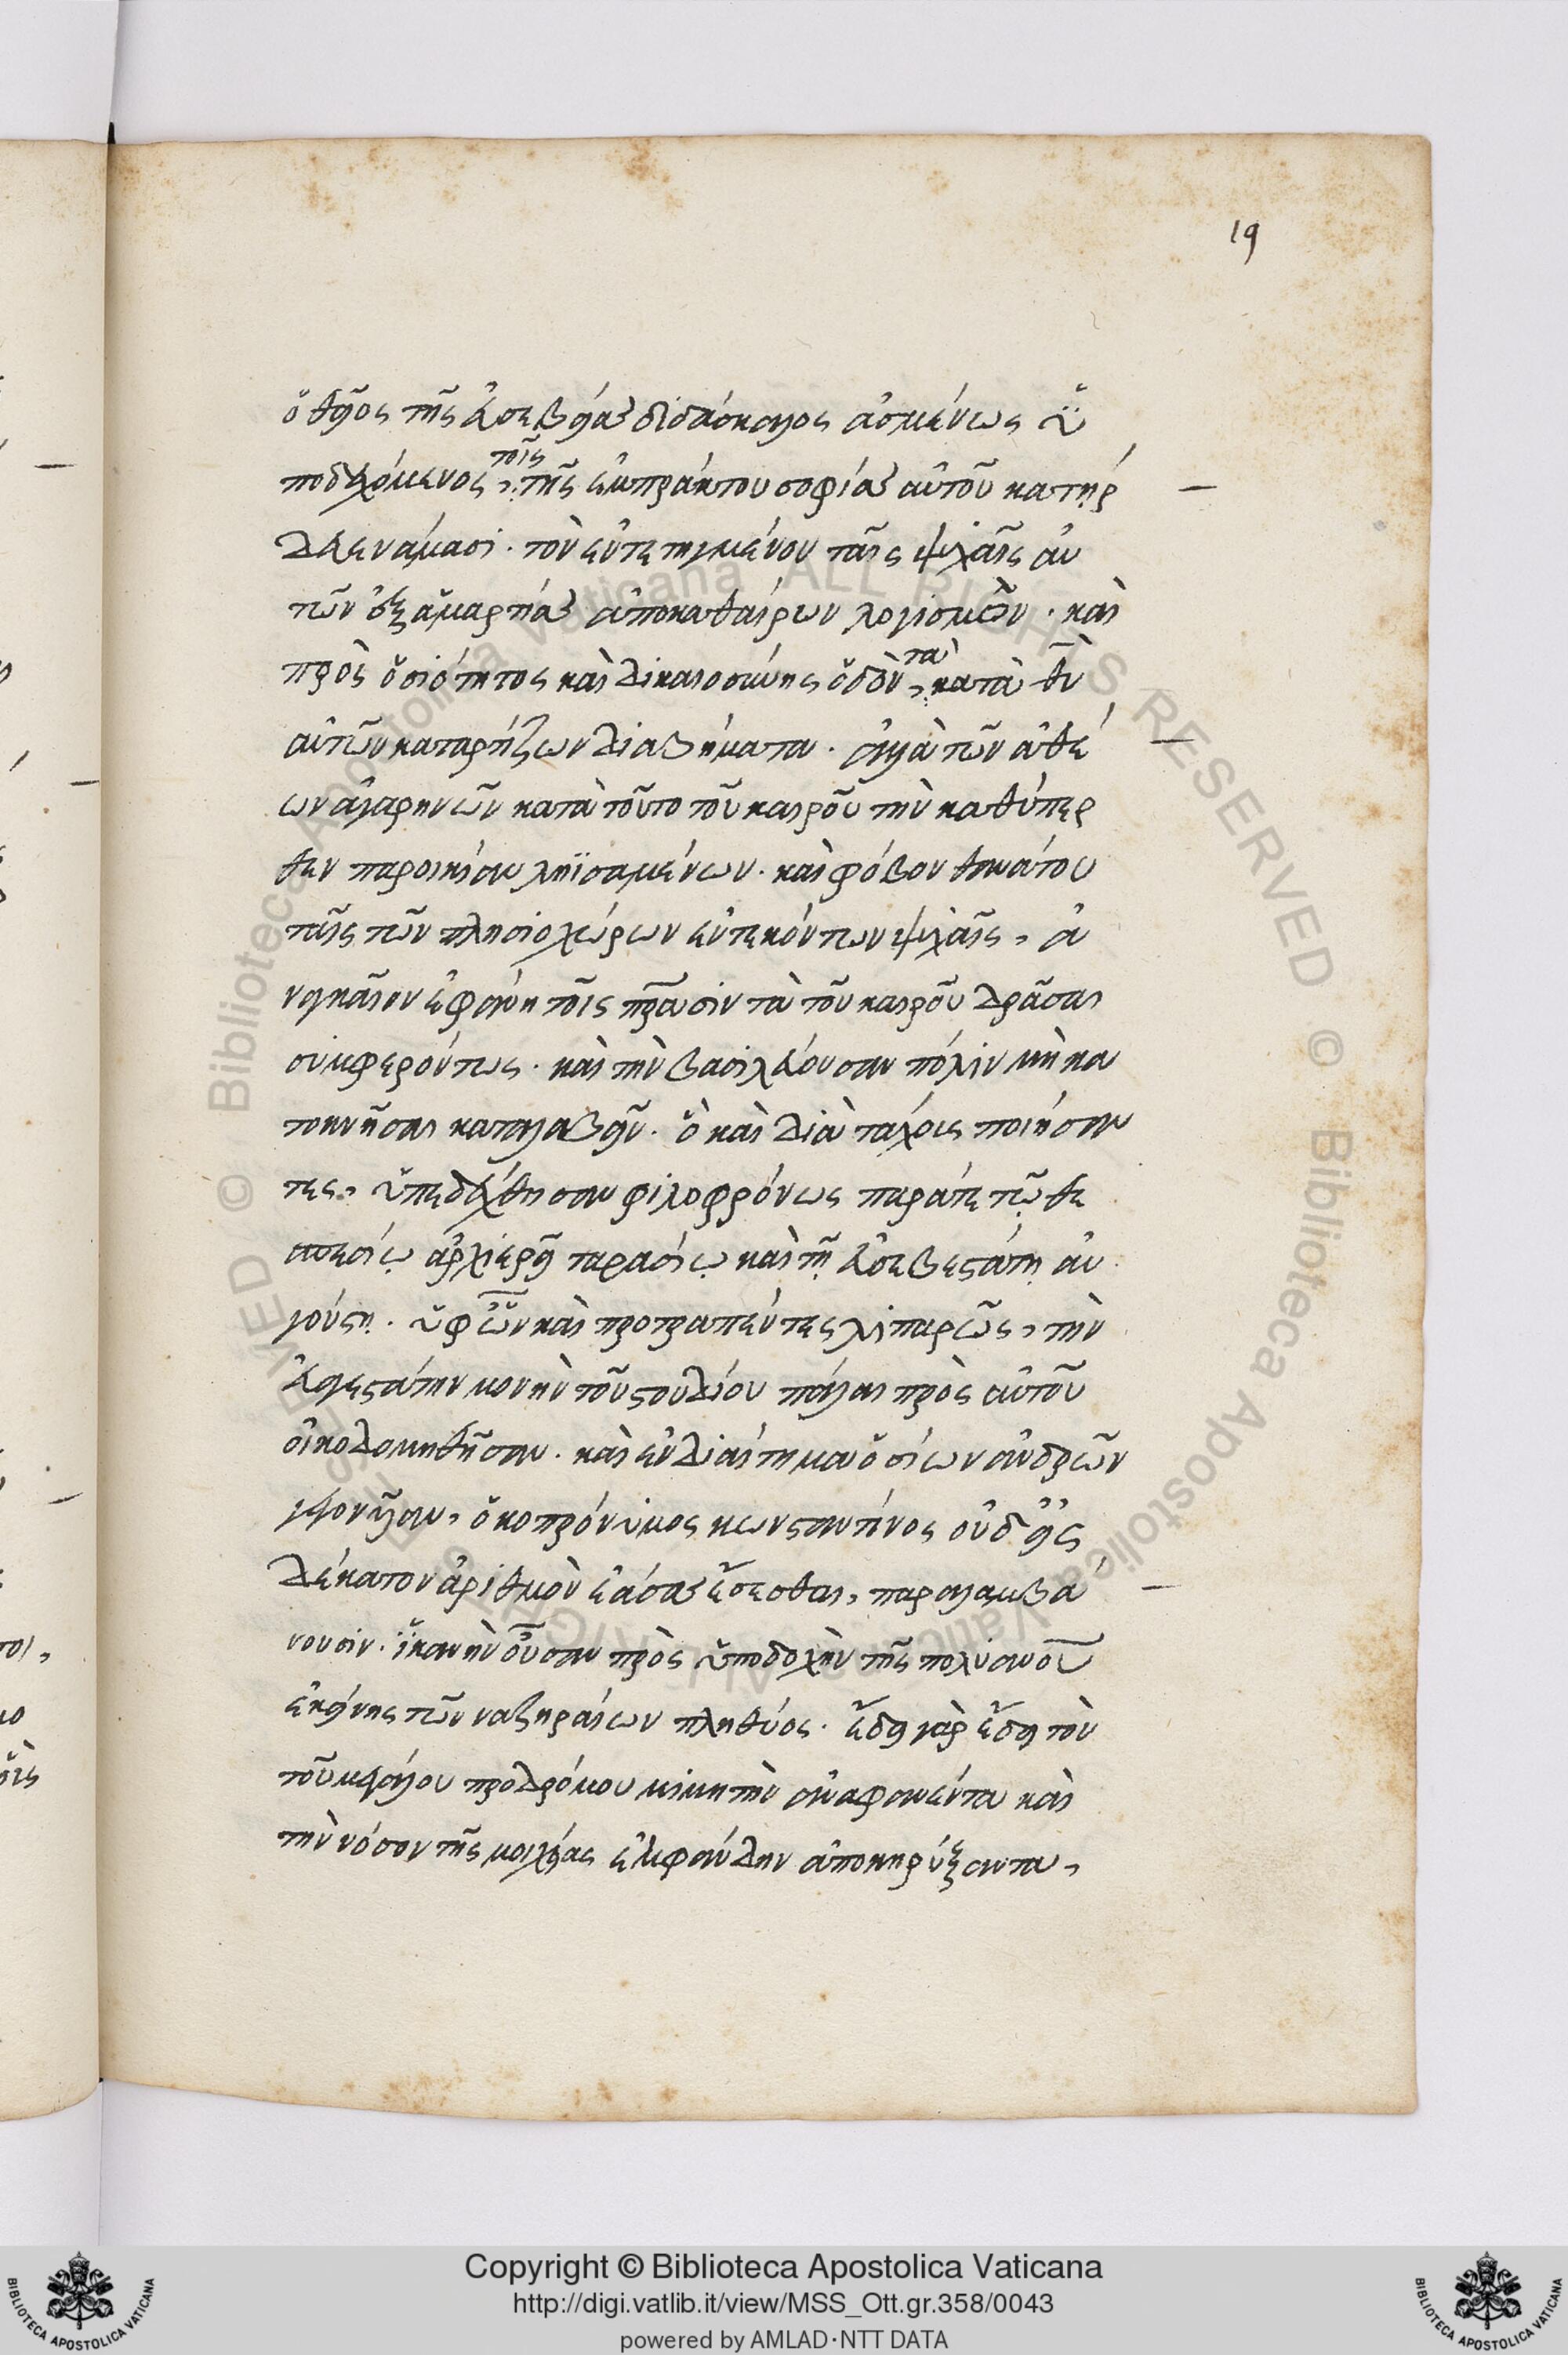 19
ὁ θεῖος τῆς εὐσεβείας διδάσκαλος ἀσμένως ὑ
ποδεχόμενος, τοῖς τῆς ἐμπράκτου σοφίας αὐτοῦ κατήρ
δευε νάμασι. τὸν ἐντετηγμένον ταῖς ψυχαῖς αὐ
τῶν ἐξ ἁμαρτίας ἀποκαθαίρων λογισμὸν. καὶ
πρὸς ὁσιότητος καὶ δικαιοσύνης ὁδὸν, τὰ κατὰ θν
αὐτῶν καταρτίζων διαβήματα. ἀλλὰ τῶν ἀθέ
ων ἀγαρηνῶν κατὰ τοῦτο τοῦ καιροῦ τὴν καθύπερ
θεν παροικίαν ληϊσαμένων. καὶ φόβον θανάτου
ταῖς τῶν πλησιοχώρων ἐντεκόντων ψυχαῖς, ἀ
ναγκαῖον ἐφάνη τοῖς πρασιν τὰ τοῦ καιροῦ δρᾶσαι
συμφερόντως. καὶ τὴν βασιλεύουσαν πόλιν μὴ κα
τοκνῆσαι καταλαβεῖν. ὃ καὶ διὰ τάχους ποιήσαν
τες, ὑπεδέχθησαν φιλοφρόνως παράτε τῷ θε
σπεσίῳ ἀρχιερεῖ ταρασίῳ καὶ τῇ εὐσεβεστάτῃ αὐ
γούστῃ. ὑφ' ὧν καὶ προτραπέντες λιπαρῶς, τὴν
εὐαγεστάτην μονὴν τοῦ στουδίου πάλαι πρὸς αὐτοῦ
οἰκοδομηθῆσαν. καὶ ἐνδιαίτημα ὁσίων ἀνδρῶν
γεγονυῖαν, ὁ κοπρόνυμος κωνσταντῖνος οὐδ' εἰς
δέκατον ἀριθμὸν ἐάσας ἔσεσθαι, παραλαμβά
νουσιν. ἱκανὴν οὖσαν πρὸς ὑποδοχὴν τῆς πολυάνου
ἐκείνης τῶν ναζηραίων πληθύος. ἔδει γὰρ ἔδει τὸν
τοῦ μεγάλου προδρόμου μιμητὴν ἀναφανέντα καὶ
τὴν νόσον τῆς μοιχείας ἐμφάνδην ἀποκηρύξαντα,
Copyright © Biblioteca Apostolica Vaticana
http://digi.vatlib.it/view/MSS_Ott.gr.358/0043
powered by AMLAD·NTT DATA